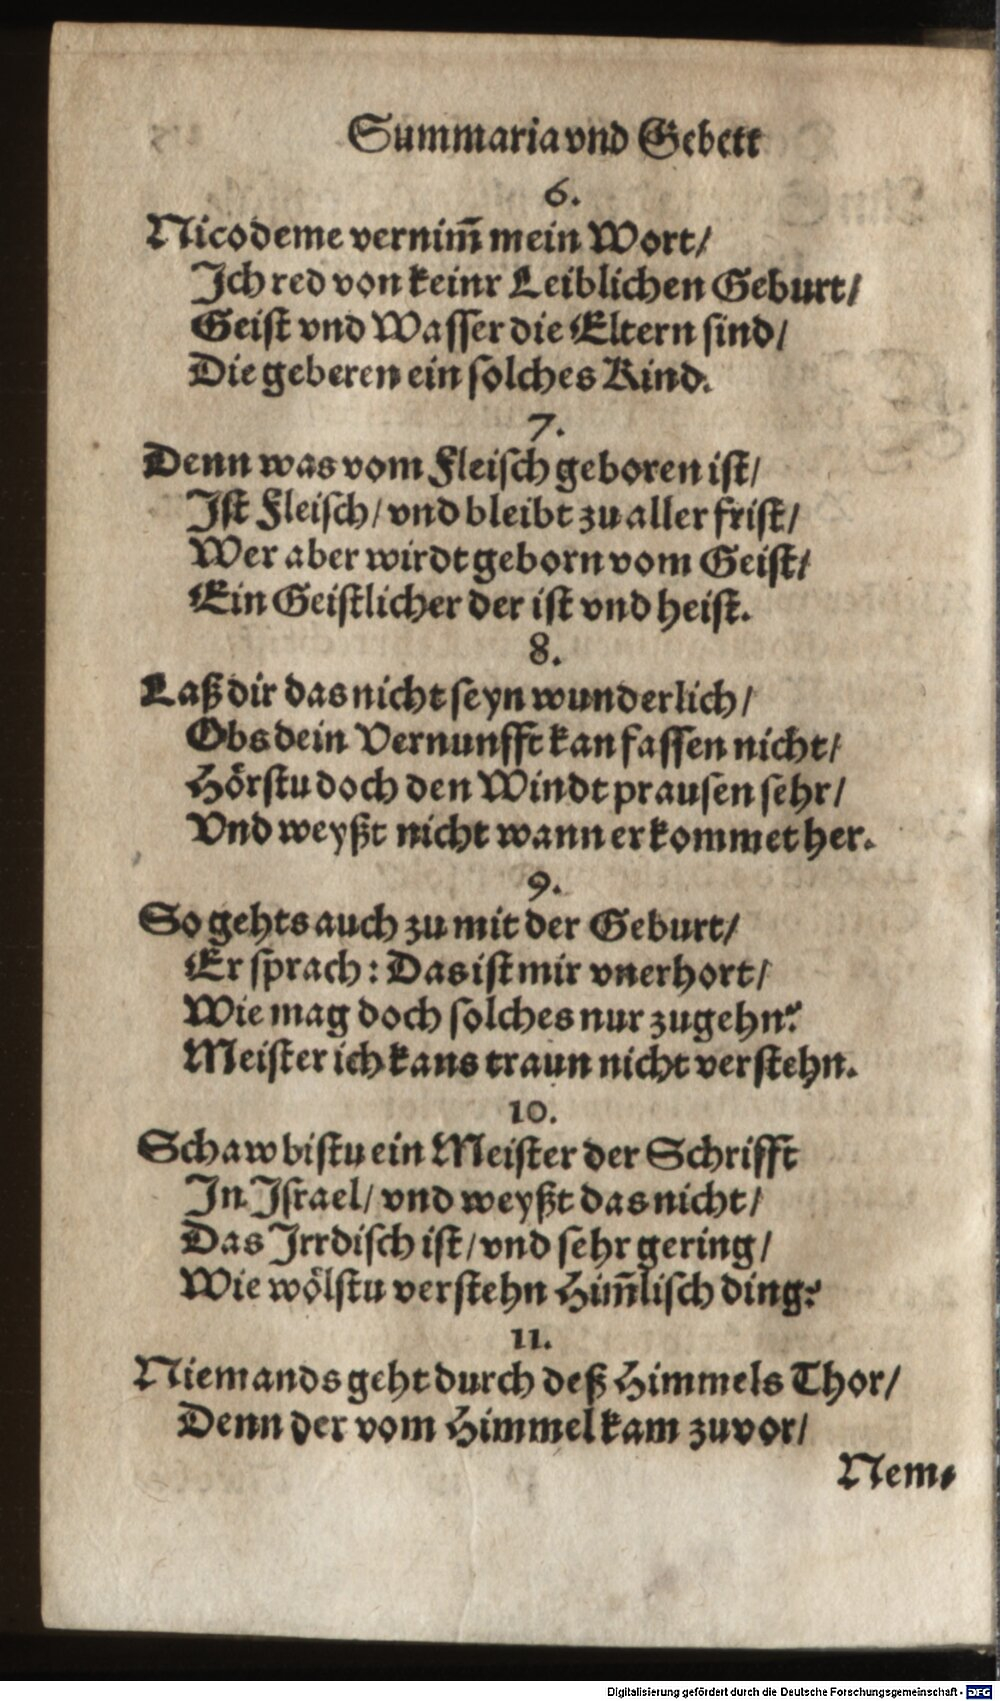 Summaria vnd Gebett
6.
Nicodeme vernim̃ mein Wort/
Ich red von keinr Leiblichen Geburt/
Geist vnd Wasser die Eltern sind/
Die geberen ein solches Kind.
7.
Denn was vom Fleisch geboren ist/
Ist Fleisch/ vnd bleibt zu aller frist/
Wer aber wirdt geborn vom Geist/
Ein Geistlicher der ist vnd heist.
8.
Laß dir das nicht seyn wunderlich/
Obs dein Vernunfft kan fassen nicht/
Hörstu doch den Windt prausen sehr/
Vnd weyßt nicht wann er kommet her.
9.
So gehts auch zu mit der Geburt/
Er sprach: Das ist mir vnerhort/
Wie mag doch solches nur zugehn?
Meister ich kans traun nicht verstehn.
10.
Schaw bistu ein Meister der Schrifft
In Israel/ vnd weyßt das nicht/
Das Irrdisch ist/ vnd sehr gering/
Wie wölstu verstehn Him̃lisch ding?
11.
Niemands geht durch deß Himmels Thor/
Denn der vom Himmel kam zuvor/
Nem-
Digitalisierung gefördert durch die Deutsche Forschungsgemeinschaft - DFG